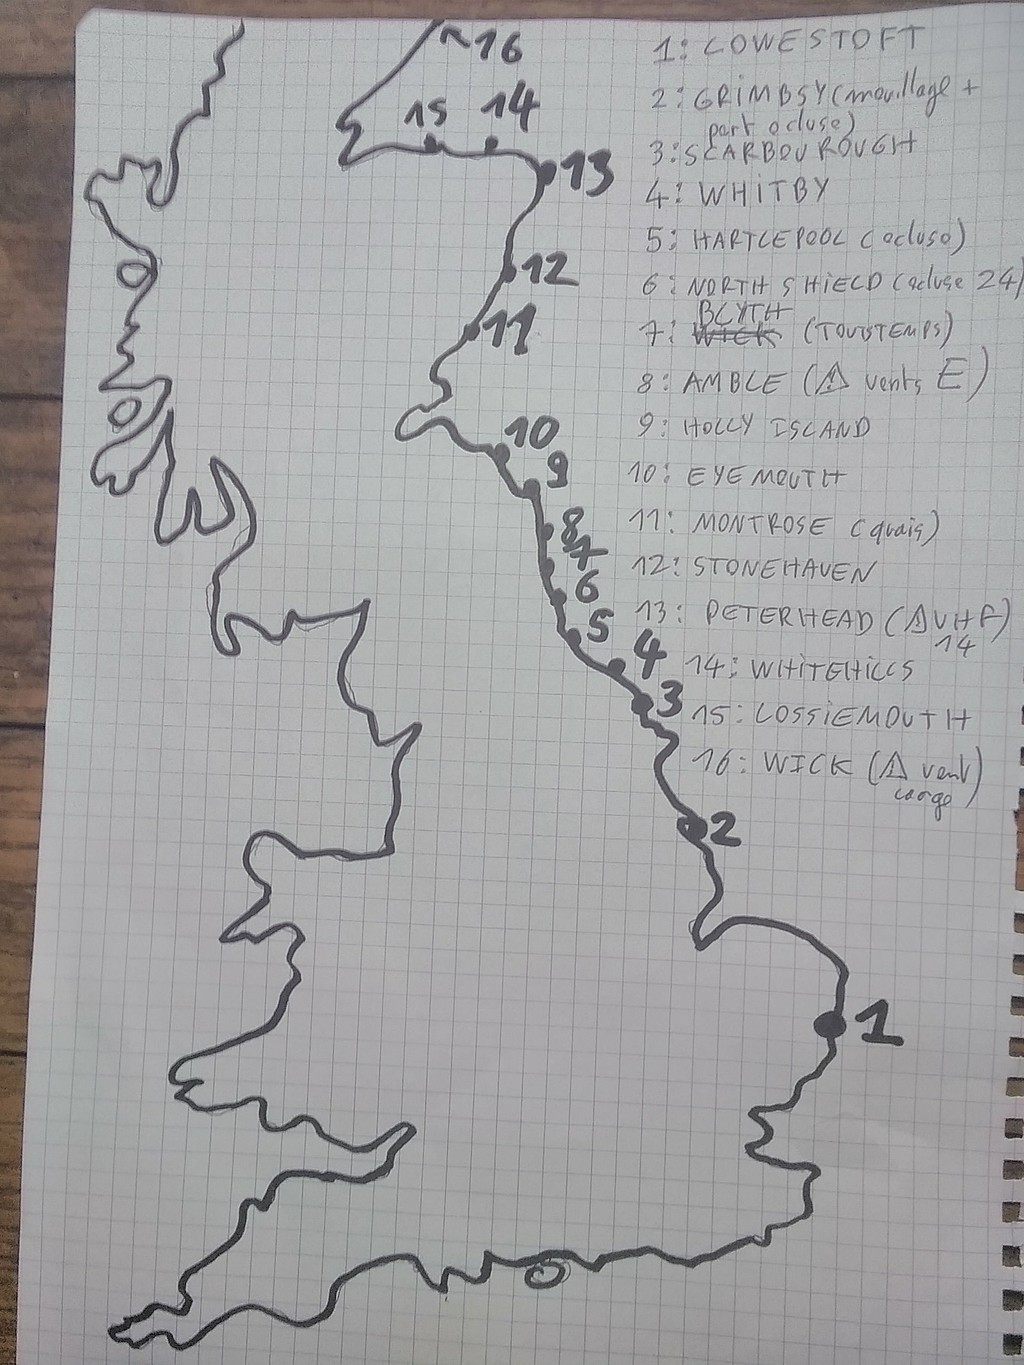 1: LOWESTOFT
2: GRIMBSY (mouillage +
port écluse)
3: SCARBOUROUGH
4: WHITBY
5: HARTLEPOOL (écluse)
6: NORTH SHIELD (écluse 24)
BLYTH
7: WICK (TOUSTEMPS)
8: AMBLE (⚠ vents E)
9: HOLLY ISLAND
10: EYEMOUTH
11: MONTROSE (quais)
12: STONEHAVEN
13: PETERHEAD (⚠ VHF)
14
14: WHITEHILLS
15: LOSSIEMOUTH
16: WICK (⚠ vent)
large
16
15
14
13
12
11
10
9
8
7
6
5
4
3
2
1